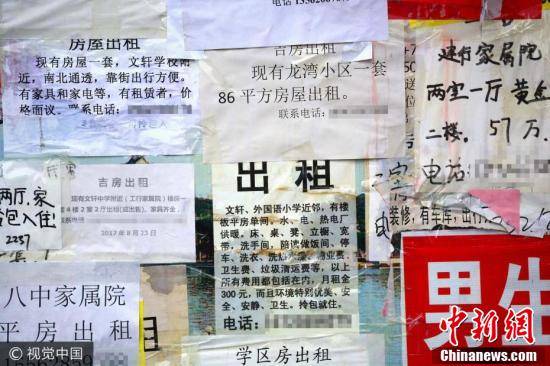 电话
房屋出租
现有房屋一套，文轩学校附
近，南北通透，靠街出行方便。
有家具和家电等，有租赁者，价
格面议。联系电话：
吉房出租
现有龙湾小区一套
86平方房屋出租。
联系电话：
建行家属院
两室一厅 黄金
二楼，57万
电话：
吉房出租
现有文轩中学附近（工行家属院）楼房一
2017年8月23日
两厅，家
包入住
2237
出租
文轩、外国语小学近邻，有楼
板平房单间，水、电、热电厂
供暖。床、桌、凳、立橱、宽
带、洗手间，陪读做饭间、停
车、洗衣、
卫生费、垃圾清运费等，以上
所有费用都包括在内，月租金
300元，而且环境特别优美、安
全、安静、卫生。拎包就住。
电话：
装修，有车库，出行
八中家属院
平房出租
学区房出租
男生
视觉中国
中新网
Chinanews.com